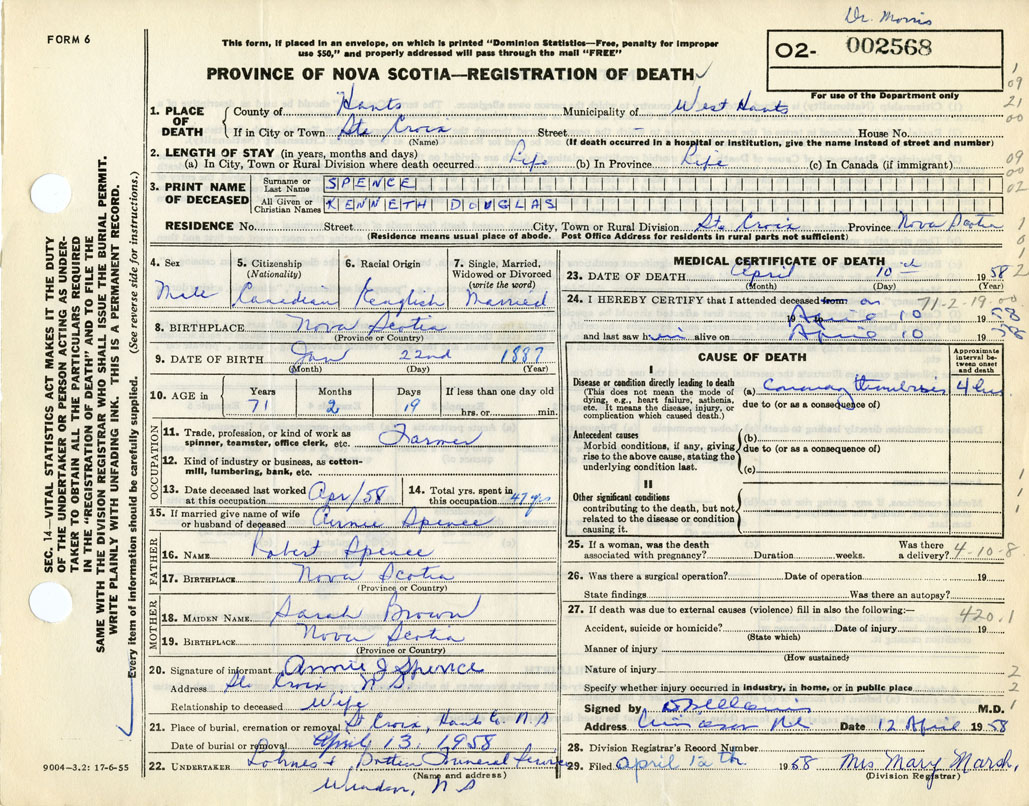 Dr. Morris
FORM 6
This form, if placed in an envelope, on which is printed "Dominion Statistics—Free, penalty for improper
use $50," and properly addressed will pass through the mail "FREE"
O2- 002568
For use of the Department only
PROVINCE OF NOVA SCOTIA—REGISTRATION OF DEATH
SEC. 14—VITAL STATISTICS ACT MAKES IT THE DUTY
OF THE UNDERTAKER OR PERSON ACTING AS UNDER-
TAKER TO OBTAIN ALL THE PARTICULARS REQUIRED
IN THE "REGISTRATION OF DEATH" AND TO FILE THE
SAME WITH THE DIVISION REGISTRAR WHO SHALL ISSUE THE BURIAL PERMIT.
WRITE PLAINLY WITH UNFADING INK. THIS IS A PERMANENT RECORD.
Every item of information should be carefully supplied. (See reverse side for instructions.)
1. PLACE OF DEATH County of Hants Municipality of West Hants
If in City or Town Ste Croix Street - House No.
(Name) (If death occurred in a hospital or institution, give the name instead of street and number)
2. LENGTH OF STAY (in years, months and days)
(a) In City, Town or Rural Division where death occurred Life (b) In Province Life (c) In Canada (if immigrant)
3. PRINT NAME OF DECEASED Surname or Last Name SPENCE
All Given or Christian Names KENNETH DOUGLAS
RESIDENCE No. Street City, Town or Rural Division St. Croix Province Nova Scotia
(Residence means usual place of abode. Post Office Address for residents in rural parts not sufficient)
4. Sex 5. Citizenship (Nationality) 6. Racial Origin 7. Single, Married, Widowed or Divorced (write the word)
Male Canadian English Married
8. BIRTHPLACE Nova Scotia
(Province or Country)
9. DATE OF BIRTH Jan 22nd 1887
(Month) (Day) (Year)
10. AGE in Years Months Days If less than one day
71 2 19 hrs. or min.
OCCUPATION
11. Trade, profession, or kind of work as
spinner, teamster, office clerk, etc. Farmer
12. Kind of industry or business, as cotton-
mill, lumbering, bank, etc.
13. Date deceased last worked at this occupation Apr/58 14. Total yrs. spent in this occupation 47 yrs
15. If married give name of wife
or husband of deceased Annie Spence
FATHER
16. NAME Robert Spence
17. BIRTHPLACE Nova Scotia
(Province or Country)
MOTHER
18. MAIDEN NAME Sarah Brown
19. BIRTHPLACE Nova Scotia
(Province or Country)
20. Signature of informant Annie J Spence
Address Ste Croix, N S
Relationship to deceased Wife
21. Place of burial, cremation or removal St Croix, Hants Co. N S
Date of burial or removal April 13, 1958
22. UNDERTAKER Lohnes & Funeral Service
(Name and address)
Windsor, N S
9004—3.2: 17-6-55
MEDICAL CERTIFICATE OF DEATH
23. DATE OF DEATH April 10 1958
(Month) (Day) (Year)
24. I HEREBY CERTIFY that I attended deceased from on 71-2-19.00
April 10 1958
and last saw him alive on April 10 1958
CAUSE OF DEATH
Approximate interval between onset and death
I
Disease or condition directly leading to death
(This does not mean the mode of
dying, e.g., heart failure, asthenia,
etc. It means the disease, injury, or
complication which caused death.)
(a) Coronary thrombosis 4 hrs
due to (or as a consequence of)
Antecedent causes
Morbid conditions, if any, giving
rise to the above cause, stating the
underlying condition last.
(b)
due to (or as a consequence of)
(c)
II
Other significant conditions
contributing to the death, but not
related to the disease or condition
causing it.
25. If a woman, was the death
associated with pregnancy? Duration weeks. Was there a delivery? 4-10-8
26. Was there a surgical operation? Date of operation 19
State findings Was there an autopsy?
27. If death was due to external causes (violence) fill in also the following:— 420.1
Accident, suicide or homicide? Date of injury 19
(State which)
Manner of injury
(How sustained)
Nature of injury
Specify whether injury occurred in industry, in home, or in public place
Signed by M.D.
Address Date 12 April 1958
28. Division Registrar's Record Number
29. Filed April 12th 1958 Mrs Mary Marsh
(Division Registrar)